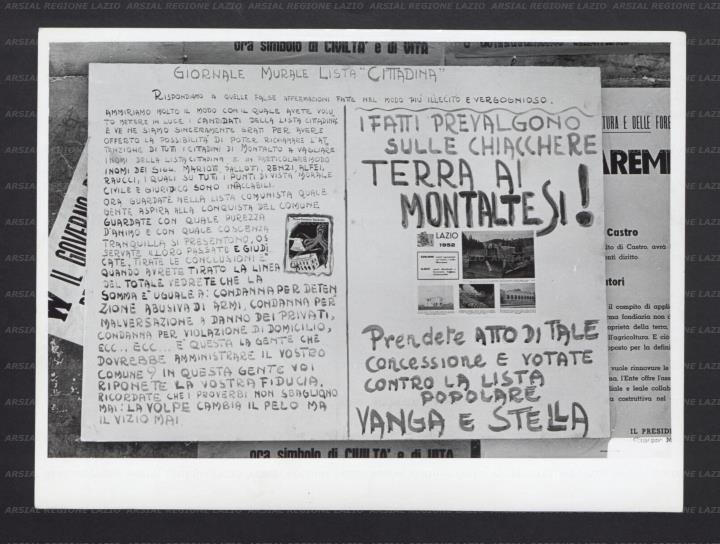 ora simbolo di CIVILTA' e di VITA
GIORNALE MURALE LISTA "CITTADINA"
RISPONDIAMO A QUELLE FALSE AFFERMAZIONI FATTE NEL MODO PIÙ ILLECITO E VERGOGNIOSO.
AMMIRIAMO MOLTO IL MODO CON IL QUALE AVETE VOLU
TO METTERE IN LUCE I CANDIDATI DELLA LISTA CITTADINA
E VE NE SIAMO SINCERAMENTE GRATI PER AVERE
OFFERTO LA POSSIBILITÀ DI POTER RICHIAMARE L'AT
TENZIONE DI TUTTI I CITTADINI DI MONTALTO A VAGLIARE
I NOMI DELLA LISTA CITTADINA E IN PARTICOLARE MODO
I NOMI DEI SIGG. MARIOTTI, PALLOTTI, RENZI, ALFEI,
RAUCCI, I QUALI SU TUTTI I PUNTI DI VISTA MORALE
CIVILE E GIURIDICO SONO INACCABILI.
ORA GUARDATE NELLA LISTA COMUNISTA QUALE
GENTE ASPIRA ALLA CONQUISTA DEL COMUNE
GUARDATE CON QUALE PUREZZA
D'ANIMO E CON QUALE COSCENZA
TRANQUILLA SI PRESENTONO, OS
SERVATE IL LORO PASSATO E GIUDI
CATE, TIRATE LE CONCLUSIONI E
QUANDO AVRETE TIRATO LA LINEA
DEL TOTALE VEDRETE CHE LA
SOMMA E' UGUALE A: CONDANNA PER DETEN
ZIONE ABUSIVA DI ARMI, CONDANNA PER
MALVERSAZIONE A DANNO DEI PRIVATI,
CONDANNA PER VIOLAZIONE DI DOMICILIO,
ECC... ECC... E' QUESTA LA GENTE CHE
DOVREBBE AMMINISTRARE IL VOSTRO
COMUNE? IN QUESTA GENTE VOI
RIPONETE LA VOSTRA FIDUCIA.
RICORDATE CHE I PROVERBI NON SBAGLIONO
MAI: LA VOLPE CAMBIA IL PELO MA
IL VIZIO MAI
I FATTI PREVALGONO
SULLE CHIACCHERE
TERRA AI
MONTALTESI!
LAZIO
1952
Prendete ATTO DI TALE
concessione E VOTATE
CONTRO LA LISTA
POPOLARE
VANGA E STELLA
W IL GOVERNO
TURA E DELLE FORE
AREM
Castro
lto di Castro, avrà
nti diritto.
utori
il compito di appli
rma fondiaria non
oprietà della terra,
ll'agricoltura. E ciò
oposto per la defini
vuole rinnovare le
l'Ente offre l'ass
iale e leale collab
a costruttiva nel
IL PRESID
ora simbolo di CIVILTA' e di VITA
ARSIAL REGIONE LAZIO